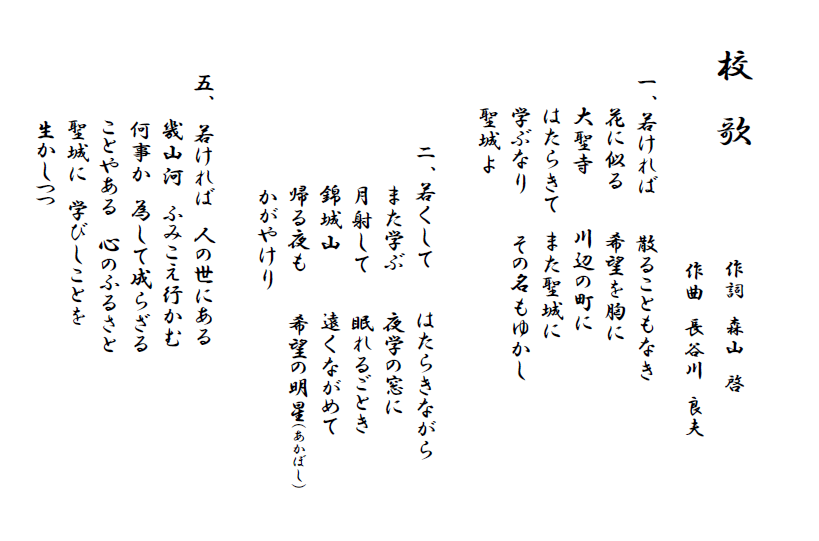 校歌
作詞 森山 啓
作曲 長谷川 良夫
一、若ければ 散ることもなき
花に似る 希望を胸に
大聖寺 川辺の町に
はたらきて また聖城に
学ぶなり その名もゆかし
聖城よ
二、若くして はたらきながら
また学ぶ 夜学の窓に
月射して 眠れるごとき
錦城山 遠くながめて
帰る夜も 希望の明星(あかぼし)
かがやけり
五、若ければ 人の世にある
幾山河 ふみこえ行かむ
何事か 為して成らざる
ことやある 心のふるさと
聖城に 学びしことを
生かしつつ